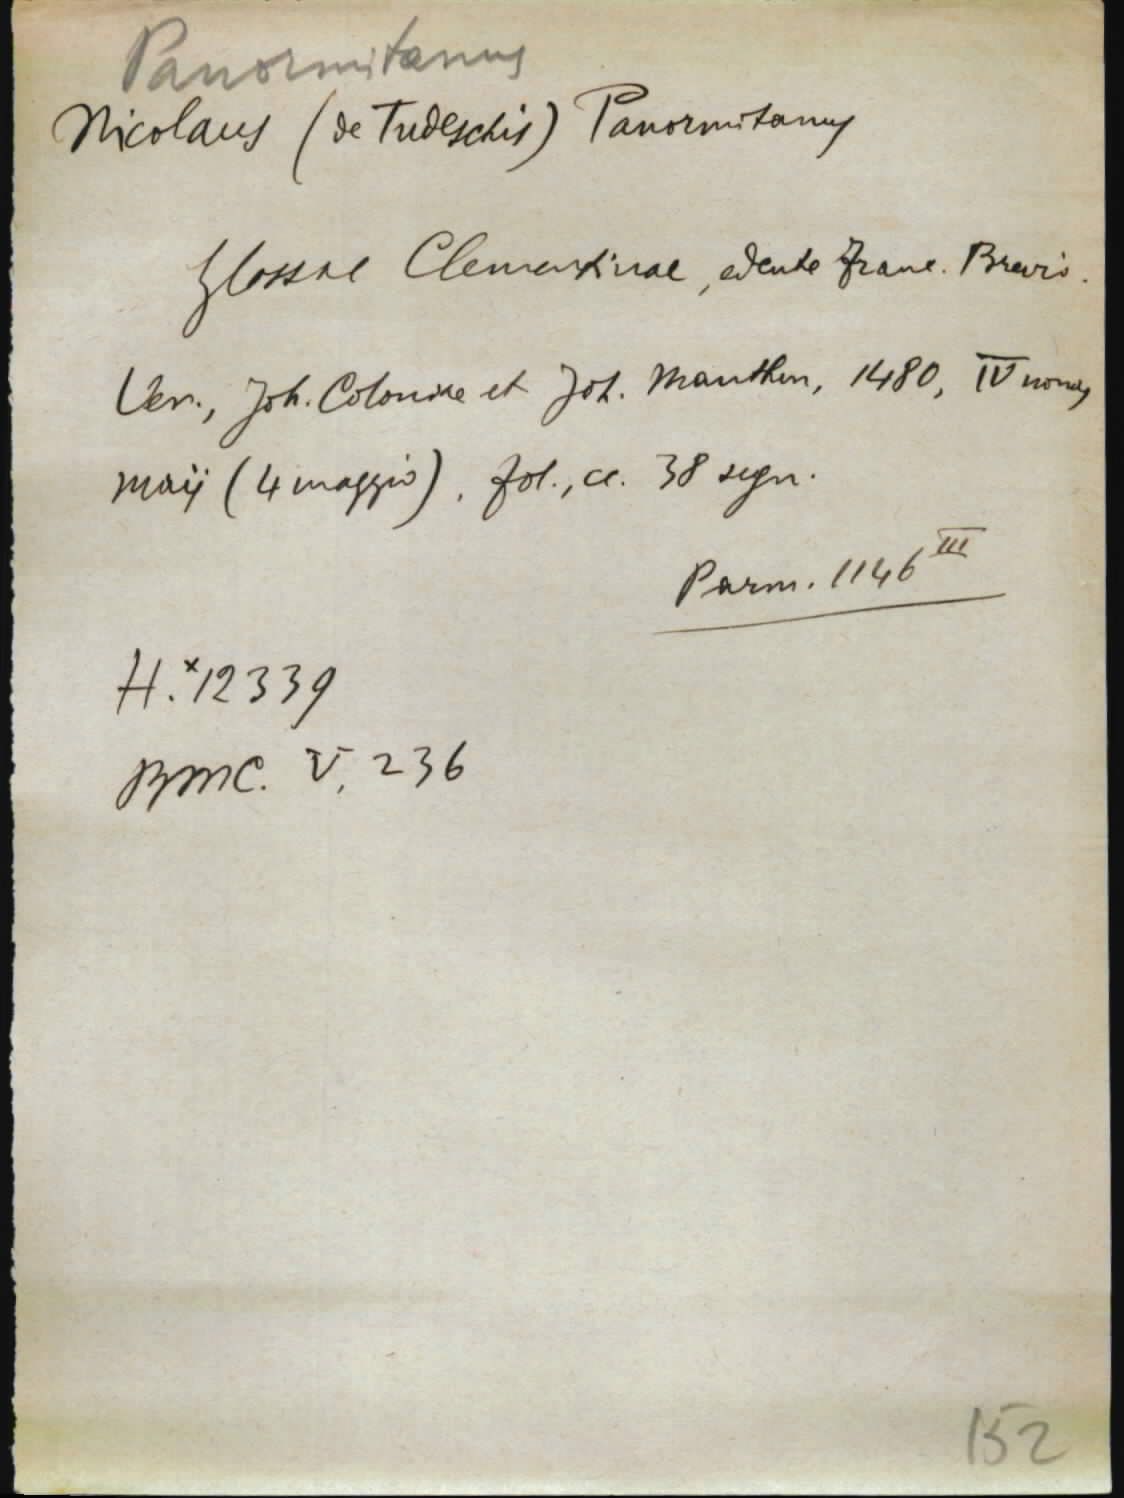 Panormitanus
Nicolaus (de Tudeschis) Panormitanus
Glossae Clementinae, edente Franc. Brevio.
Ven., Joh. Coloniae et Joh. Manthen, 1480, IV nonas
maij (4 maggio). fol., cc. 38 segn.
Parm. 1146 III
H.*12339
BMC. V. 236
152